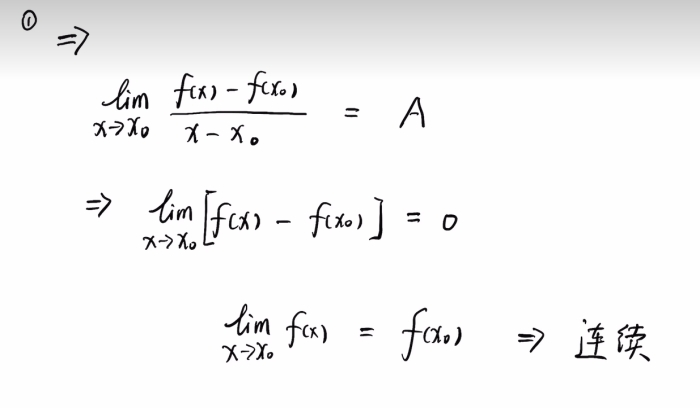 ① ⇒
lim x→x₀ (f(x) − f(x₀)) / (x − x₀) = A
⇒ lim x→x₀ [f(x) − f(x₀)] = 0
lim x→x₀ f(x) = f(x₀) ⇒ 连续